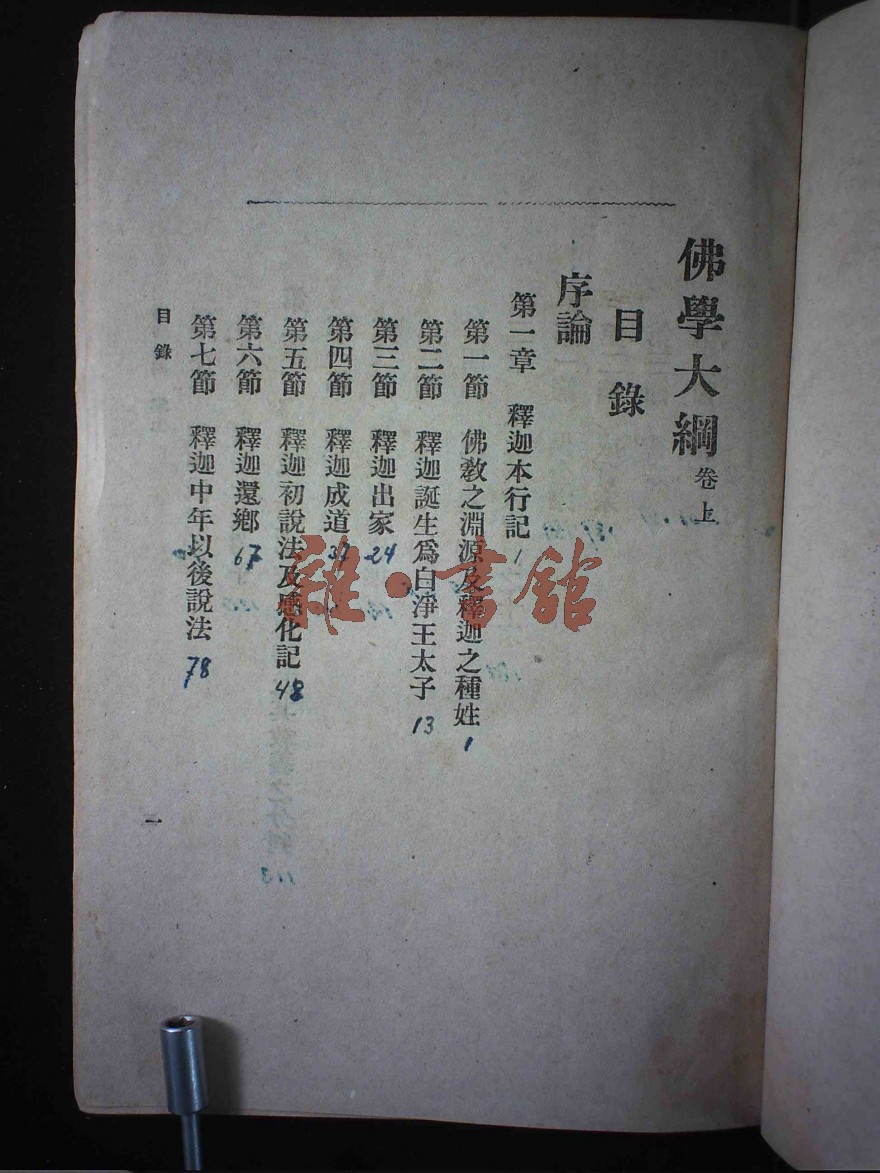 佛學大綱 卷上
目錄
序論
第一章 釋迦本行記 1
第一節 佛教之淵源及釋迦之種姓 1
第二節 釋迦誕生爲白淨王太子 13
第三節 釋迦出家 24
第四節 釋迦成道 37
第五節 釋迦初說法及感化記 48
第六節 釋迦還鄉 67
第七節 釋迦中年以後說法 78
目錄
一
雜·書館